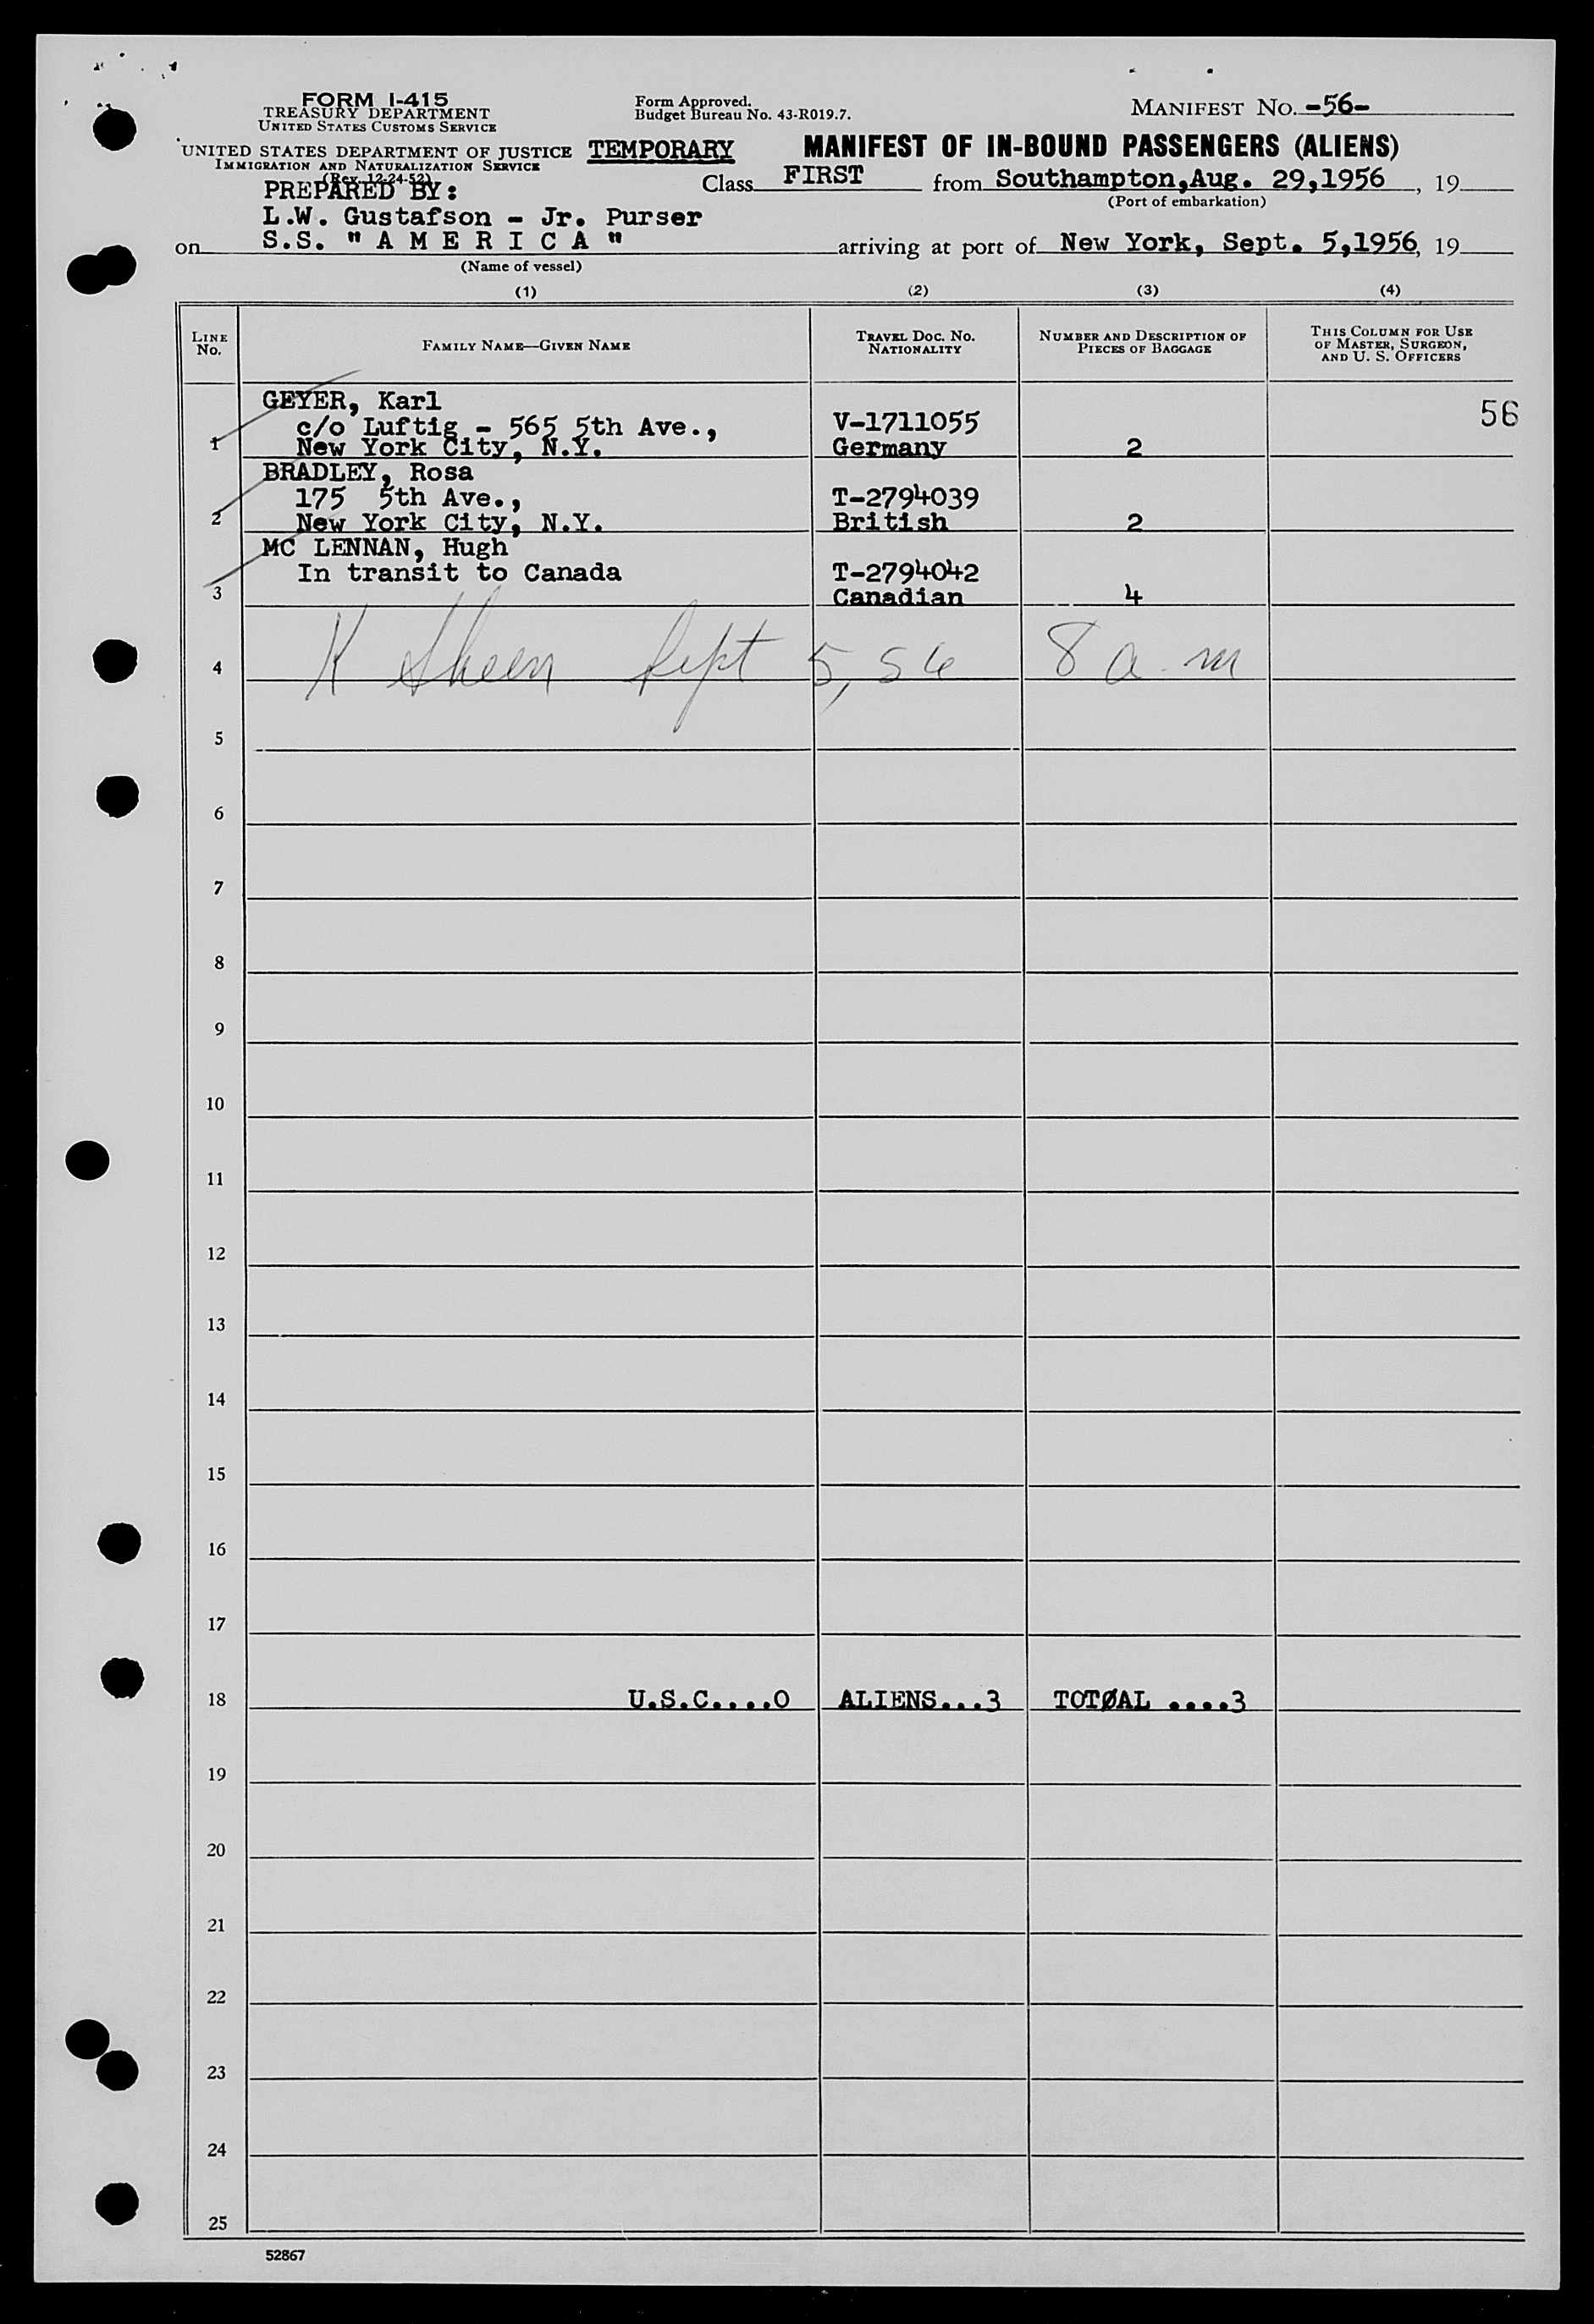 FORM I-415
TREASURY DEPARTMENT
UNITED STATES CUSTOMS SERVICE
Form Approved.
Budget Bureau No. 43-R019.7.
MANIFEST NO. -56-
UNITED STATES DEPARTMENT OF JUSTICE
IMMIGRATION AND NATURALIZATION SERVICE
(Rev. 12-24-52)
TEMPORARY
MANIFEST OF IN-BOUND PASSENGERS (ALIENS)
PREPARED BY:
Class FIRST from Southampton,Aug. 29,1956, 19
(Port of embarkation)
L.W. Gustafson - Jr. Purser
on S.S. "A M E R I C A" arriving at port of New York, Sept. 5,1956, 19
(Name of vessel)
(1) (2) (3) (4)
LINE NO. FAMILY NAME—GIVEN NAME TRAVEL DOC. NO. NATIONALITY NUMBER AND DESCRIPTION OF PIECES OF BAGGAGE THIS COLUMN FOR USE OF MASTER, SURGEON, AND U. S. OFFICERS
GEYER, Karl 56
c/o Luftig - 565 5th Ave., V-1711055
1 New York City, N.Y. Germany 2
BRADLEY, Rosa
175 5th Ave., T-2794039
2 New York City, N.Y. British 2
MC LENNAN, Hugh
In transit to Canada T-2794042
3 Canadian 4
4 K Sheen Sept 5, 56 8 a m
5
6
7
8
9
10
11
12
13
14
15
16
17
18 U.S.C....0 ALIENS...3 TOTØAL ....3
19
20
21
22
23
24
25
52867